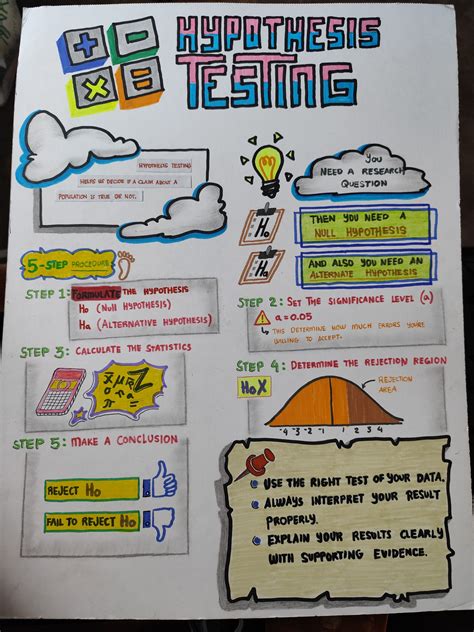 HYPOTHESIS
TESTING
HYPOTHESIS TESTING
HELPS US DECIDE IF A CLAIM ABOUT A
POPULATION IS TRUE OR NOT.
YOU
NEED A RESEARCH
QUESTION
Ho
THEN YOU NEED A
NULL HYPOTHESIS
Ha
AND ALSO YOU NEED AN
ALTERNATE HYPOTHESIS
5-STEP PROCEDURE
STEP 1: FORMULATE THE HYPOTHESIS
Ho (NULL HYPOTHESIS)
Ha (ALTERNATIVE HYPOTHESIS)
STEP 2: SET THE SIGNIFICANCE LEVEL (α)
α = 0.05
↳ THIS DETERMINE HOW MUCH ERRORS YOU'RE
WILLING TO ACCEPT.
STEP 3: CALCULATE THE STATISTICS
STEP 4: DETERMINE THE REJECTION REGION
HoX
REJECTION
AREA
-4 -3 -2 -1 1 2 3 4
STEP 5: MAKE A CONCLUSION
REJECT Ho
FAIL TO REJECT Ho
USE THE RIGHT TEST OF YOUR DATA.
ALWAYS INTERPRET YOUR RESULT
PROPERLY.
EXPLAIN YOUR RESULTS CLEARLY
WITH SUPPORTING EVIDENCE.